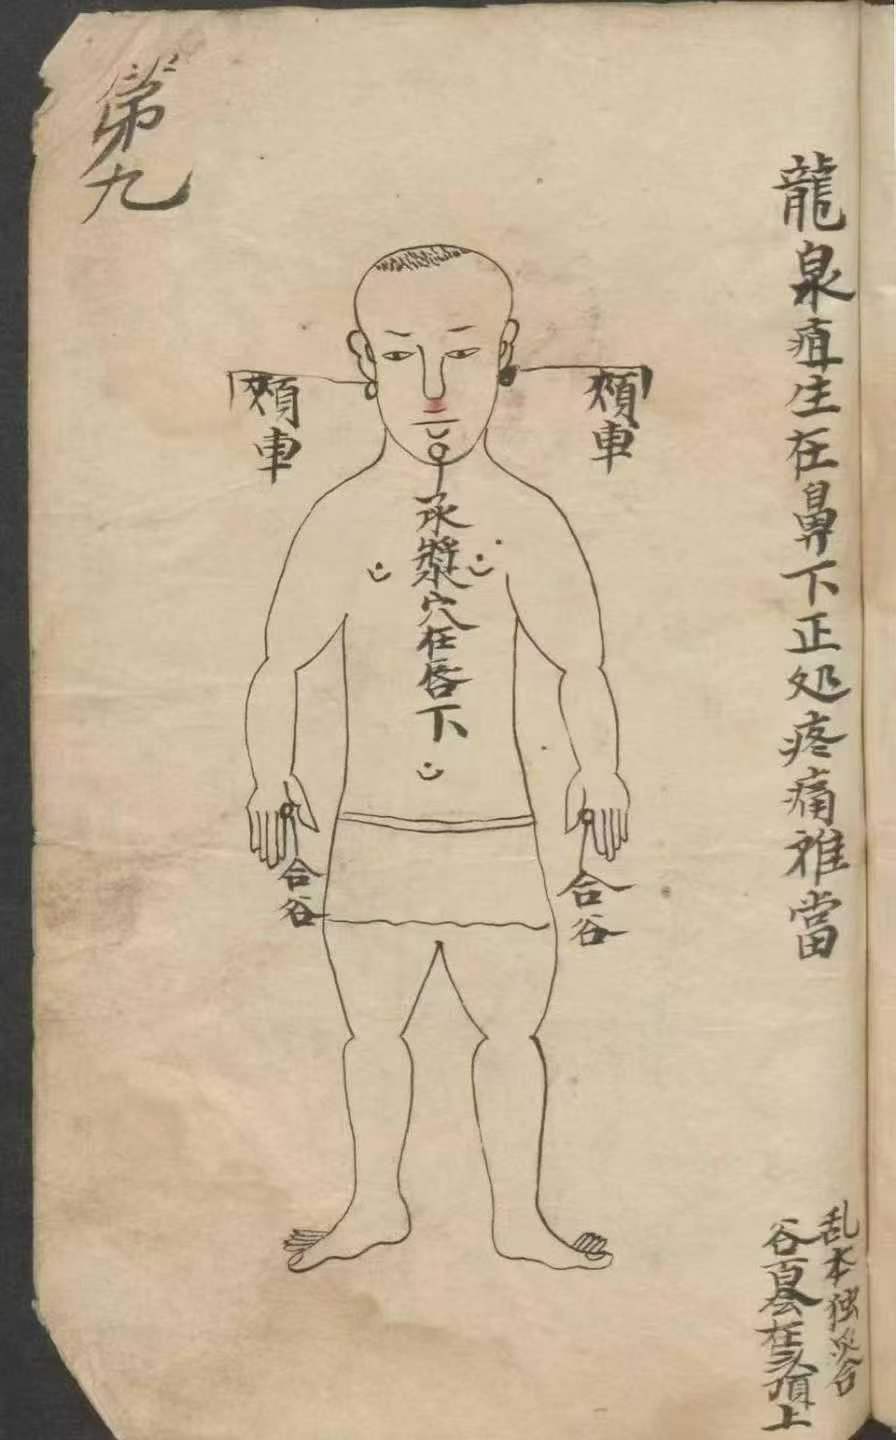 龍泉疽生在鼻下正处疼痛難當
乱本独灸合
谷百会在头頂上
頬車
頬車
承漿穴在唇下
合谷
合谷
第九